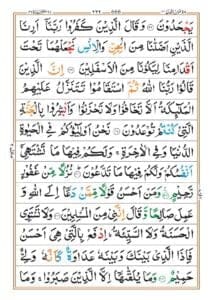 يَجْحَدُوْنَ ۝ وَقَالَ الَّذِيْنَ كَفَرُوْا رَبَّنَاۤ اَرِنَا
الَّذَيْنِ اَضَلّٰنَا مِنَ الْجِنِّ وَالْاِنْسِ نَجْعَلْهُمَا تَحْتَ
اَقْدَامِنَا لِيَكُوْنَا مِنَ الْاَسْفَلِيْنَ ۝ اِنَّ الَّذِيْنَ
قَالُوْا رَبُّنَا اللّٰهُ ثُمَّ اسْتَقَامُوْا تَتَنَزَّلُ عَلَيْهِمُ
الْمَلٰٓئِكَةُ اَلَّا تَخَافُوْا وَلَا تَحْزَنُوْا وَاَبْشِرُوْا بِالْجَنَّةِ
الَّتِيْ كُنْتُمْ تُوْعَدُوْنَ ۝ نَحْنُ اَوْلِيٰٓؤُكُمْ فِي الْحَيٰوةِ
الدُّنْيَا وَفِي الْاٰخِرَةِ ۚ وَلَكُمْ فِيْهَا مَا تَشْتَهِيْۤ
اَنْفُسُكُمْ وَلَكُمْ فِيْهَا مَا تَدَّعُوْنَ ۝ نُزُلًا مِّنْ غَفُوْرٍ
رَّحِيْمٍ ۝ وَمَنْ اَحْسَنُ قَوْلًا مِّمَّنْ دَعَاۤ اِلَى اللّٰهِ وَ
عَمِلَ صَالِحًا وَّقَالَ اِنَّنِيْ مِنَ الْمُسْلِمِيْنَ ۝ وَلَا تَسْتَوِي
الْحَسَنَةُ وَلَا السَّيِّئَةُ ؕ اِدْفَعْ بِالَّتِيْ هِيَ اَحْسَنُ
فَاِذَا الَّذِيْ بَيْنَكَ وَبَيْنَهٗ عَدَاوَةٌ كَاَنَّهٗ وَلِيٌّ
حَمِيْمٌ ۝ وَمَا يُلَقّٰىهَاۤ اِلَّا الَّذِيْنَ صَبَرُوْا ۚ وَمَا